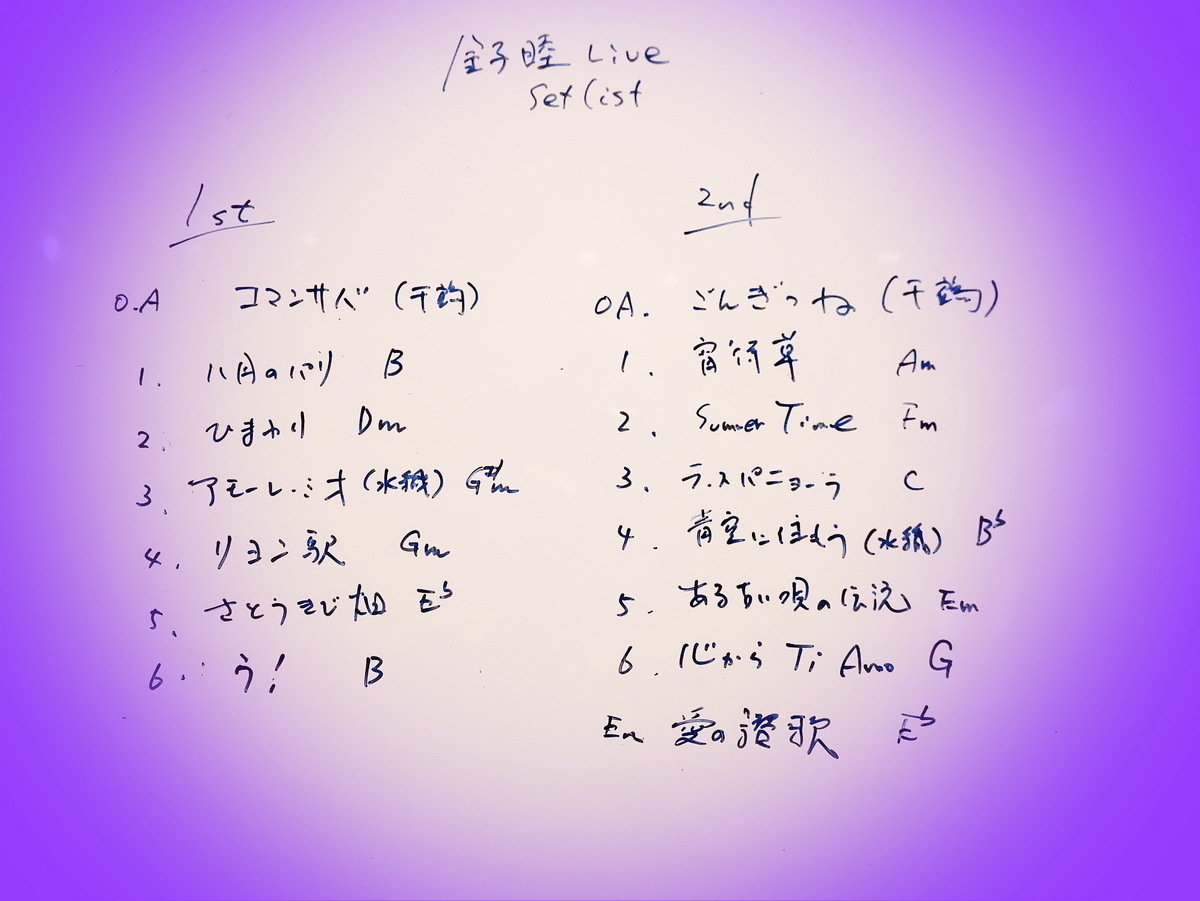 金子睦 Live
Set list
1st
O.A コマンサバ (千鶴)
1. 八月のパリ B
2. ひまわり Dm
3. アモーレ・ミオ (水絨) G#m
4. リヨン駅 Gm
5. さとうきび畑 E♭
6. う! B
2nd
OA. ごんぎつね (千鶴)
1. 宵待草 Am
2. Summer Time Fm
3. ラ・スパニョーラ C
4. 青空に住もう B♭
5. ある古い唄の伝説 Em
6. 心から Ti Amo G
En 愛の讃歌 E♭